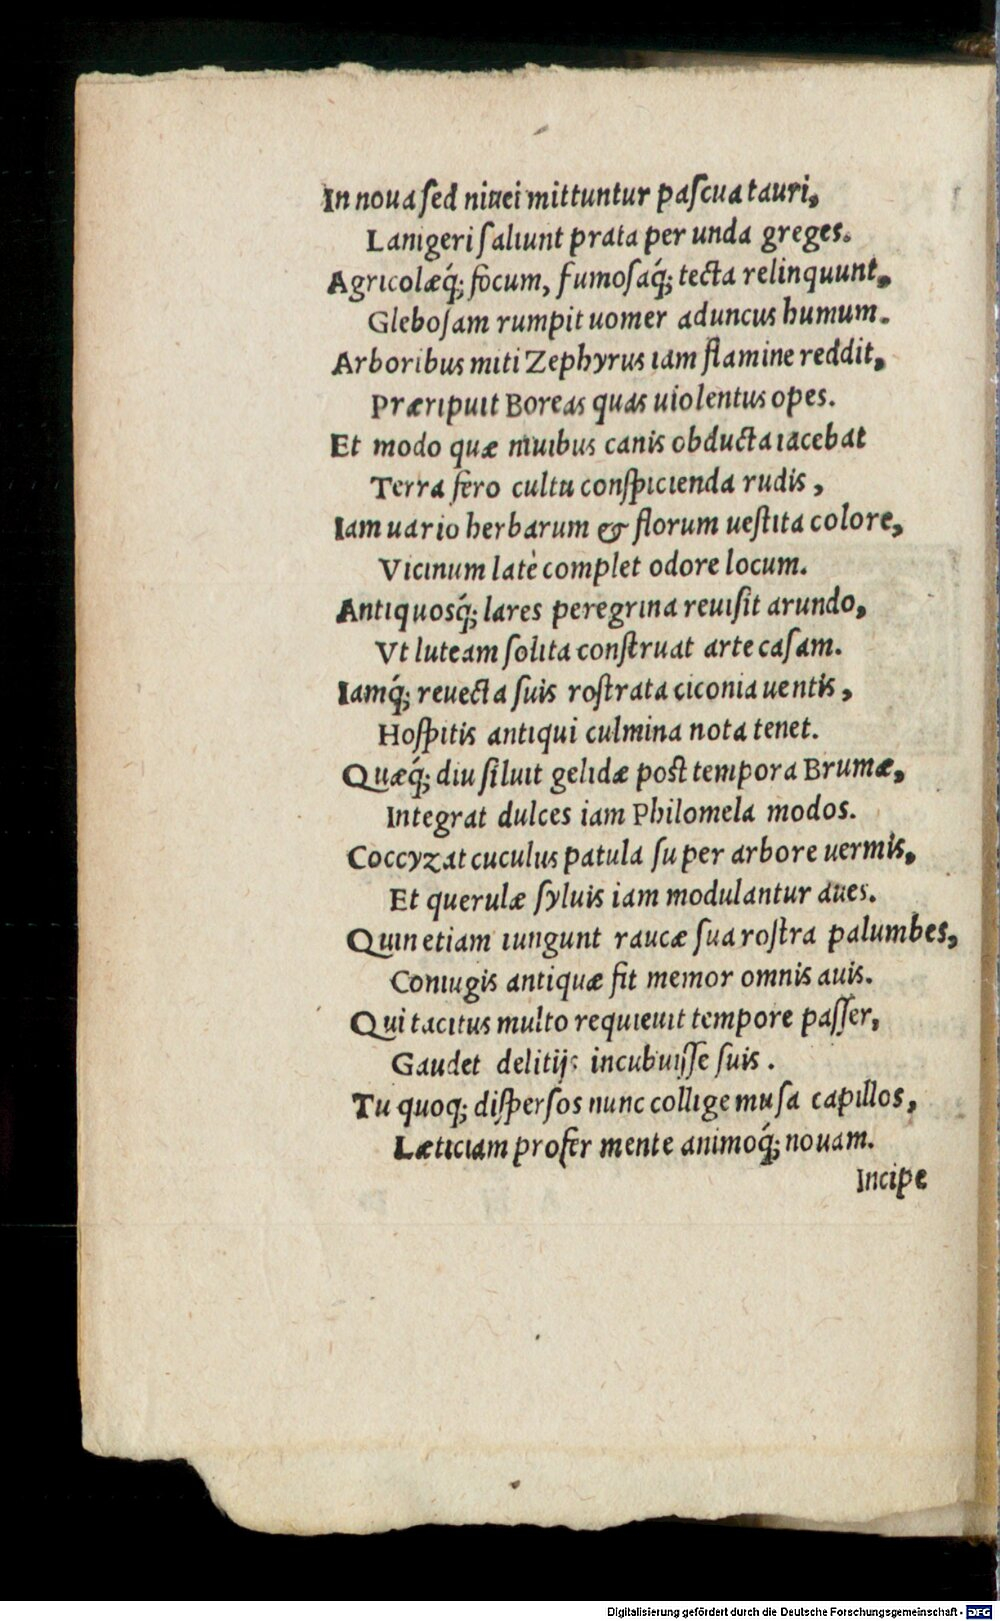 In noua sed niuei mittuntur paſcua tauri,
Lanigeri ſaliunt prata per unda greges.
Agricolæq́; focum, fumoſaq́; tecta relinquunt,
Gleboſam rumpit uomer aduncus humum.
Arboribus miti Zephyrus iam flamine reddit,
Præripuit Boreas quas uiolentus opes.
Et modo quæ niuibus canis obducta iacebat
Terra fero cultu conſpicienda rudis,
Iam uario herbarum & florum ueſtita colore,
Vicinum latè complet odore locum.
Antiquosq́; lares peregrina reuiſit arundo,
Vt luteam ſolita conſtruat arte caſam.
Iamq́; reuecta ſuis roſtrata ciconia uentis,
Hoſpitis antiqui culmina nota tenet.
Quæq́; diu ſiluit gelidæ poſt tempora Brumæ,
Integrat dulces iam Philomela modos.
Coccyzat cuculus patula ſuper arbore uermis,
Et querulæ ſyluis iam modulantur aues.
Quin etiam iungunt raucæ ſua roſtra palumbes,
Coniugis antiquæ fit memor omnis auis.
Qui tacitus multo requieuit tempore paſſer,
Gaudet delitijs incubuiſſe ſuis.
Tu quoq; diſperſos nunc collige muſa capillos,
Læticiam profer mente animoq́; nouam.
Incipe
Digitalisierung gefördert durch die Deutsche Forschungsgemeinschaft - DFG